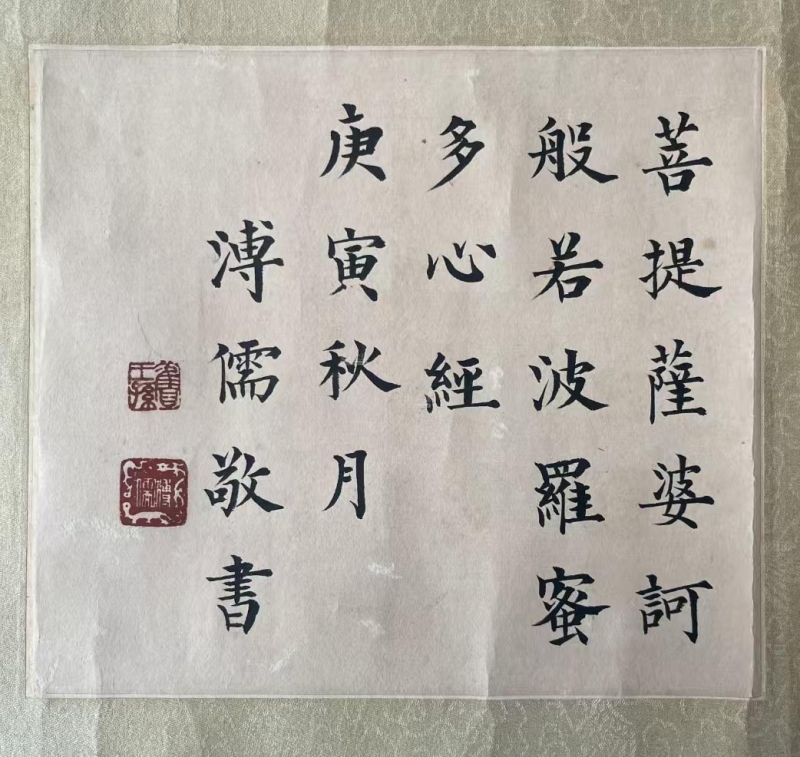 菩提薩婆訶
般若波羅蜜
多心經
庚寅秋月
溥儒敬書
舊王孫
溥儒